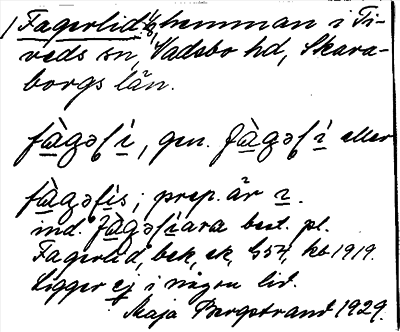 1 Fagerlid 1/8, hemman i Ti-
veds sn, Vadsbo hd, Skara-
borgs län.
fàgəlì, gen. fàgəlì eller
fàgəlìs; prep. är i.
ind. fàgəlìara best. pl.
Fagerlid, bek, ek, kb 1919.
Ligger ej i någon lid.
Maja Bergstrand 1929.